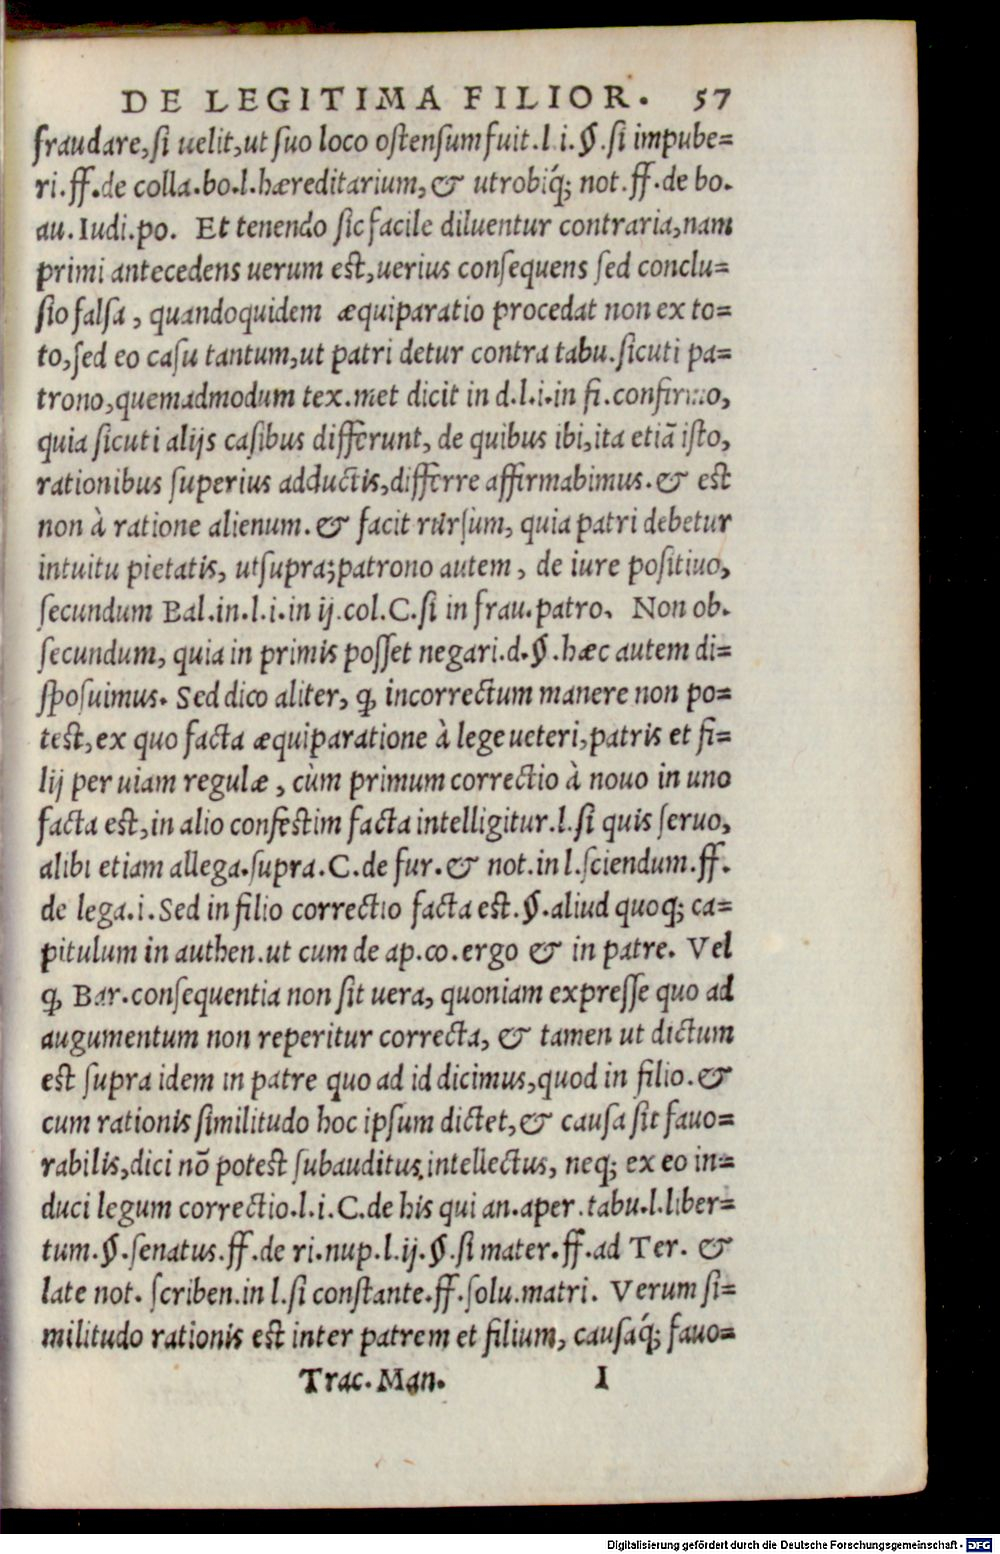 DE LEGITIMA FILIOR. 57
fraudare,si uelit,ut suo loco ostensum fuit.l.i.§.si impube=
ri.ff.de colla.bo.l.hæreditarium,& utrobiq́; not.ff.de bo.
au.Iudi.po. Et tenendo sic facile diluentur contraria,nam
primi antecedens uerum est,uerius consequens sed conclu=
sio falsa, quandoquidem æquiparatio procedat non ex to=
to,sed eo casu tantum,ut patri detur contra tabu.sicuti pa=
trono,quemadmodum tex.met dicit in d.l.i.in fi.confirmo,
quia sicuti alijs casibus differunt, de quibus ibi,ita etiā isto,
rationibus superius adductis,differre affirmabimus.& est
non à ratione alienum.& facit rursùm, quia patri debetur
intuitu pietatis, utsupra;patrono autem, de iure positiuo,
secundum Bal.in.l.i.in ij.col.C.si in frau.patro. Non ob.
secundum, quia in primis posset negari.d.§.hæc autem di=
sposuimus. Sed dico aliter, ꝙ incorrectum manere non po=
test,ex quo facta æquiparatione à lege ueteri,patris et fi=
lij per uiam regulæ, cùm primum correctio à nouo in uno
facta est,in alio confestim facta intelligitur.l.si quis seruo,
alibi etiam allega.supra.C.de fur.& not.in l.sciendum.ff.
de lega.i.Sed in filio correctio facta est.§.aliud quoq; ca=
pitulum in authen.ut cum de ap.co.ergo & in patre. Vel
ꝙ Bar.consequentia non sit uera, quoniam expresse quo ad
augumentum non reperitur correcta, & tamen ut dictum
est supra idem in patre quo ad id dicimus,quod in filio.&
cum rationis similitudo hoc ipsum dictet,& causa sit fauo=
rabilis,dici nō potest subauditus intellectus, neq; ex eo in=
duci legum correctio.l.i.C.de his qui an.aper.tabu.l.liber=
tum.§.senatus.ff.de ri.nup.l.ij.§.si mater.ff.ad Ter. &
late not. scriben.in l.si constante.ff.solu.matri. Verum si=
militudo rationis est inter patrem et filium, causaq́; fauo=
Trac.Man. I
Digitalisierung gefördert durch die Deutsche Forschungsgemeinschaft - DFG